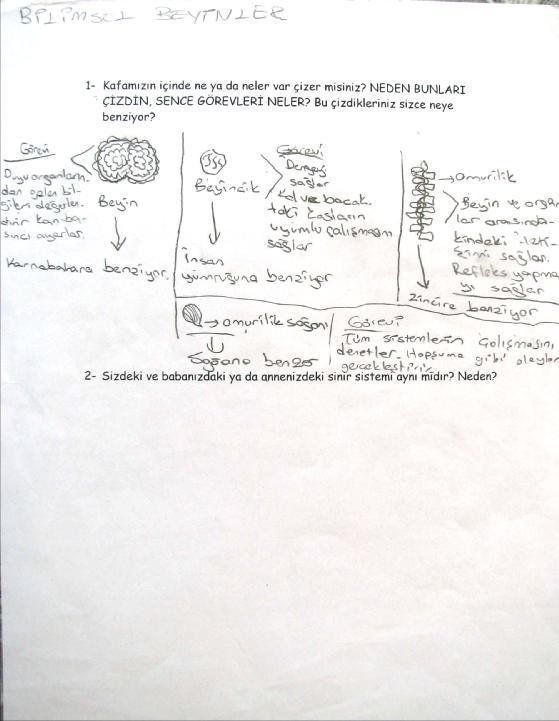 BİLİMSEL BEYİNLER
1- Kafamızın içinde ne ya da neler var çizer misiniz? NEDEN BUNLARI
ÇİZDİN, SENCE GÖREVLERİ NELER? Bu çizdikleriniz sizce neye
benziyor?
Görevi
Duyu organların-
dan gelen bil-
gileri değerlen-
dirir kan ba-
sıncı ayarlar.
Beyin
Karnabahara benziyor.
Beyincik
Görevi
Dengeyi
sağlar
Kol ve bacak-
taki kasların
uyumlu çalışmasını
sağlar
İnsan
yumruğuna benziyor
Omurilik
Beyin ve organ
lar arasında-
kindeki ilet-
şimi sağlar.
Refleks yapma
yı sağlar
Zincire benziyor
omurilik soğanı
Soğana benzer
Görevi
Tüm sistemlerin çalışmasını,
denetler. Hapşuma gibi olaylar
gerçekleştirir
2- Sizdeki ve babanızdaki ya da annenizdeki sinir sistemi aynı mıdır? Neden?